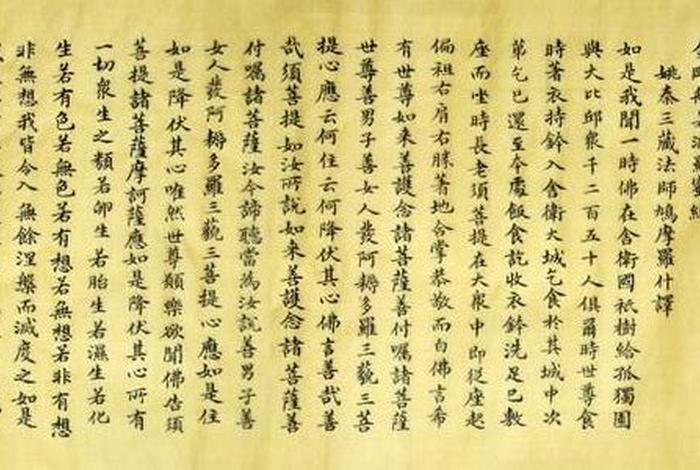 姚秦三藏法師鳩摩羅什譯
如是我聞一時佛在舍衛國祇樹給孤獨園
與大比邱衆千二百五十人俱爾時世尊食
時著衣持鉢入舍衛大城乞食於其城中次
第乞已還至本處飯食訖收衣鉢洗足已敷
座而坐時長老須菩提在大衆中即從座起
偏袒右肩右膝著地合掌恭敬而白佛言希
有世尊如来善護念諸菩薩善付囑諸菩薩
世尊善男子善女人發阿耨多羅三藐三菩
提心應云何住云何降伏其心佛言善哉善
哉須菩提如汝所說如来善護念諸菩薩善
付囑諸菩薩汝今諦聽當為汝說善男子善
女人發阿耨多羅三藐三菩提心應如是住
如是降伏其心唯然世尊願樂欲聞佛告須
菩提諸菩薩摩訶薩應如是降伏其心所有
一切衆生之類若卵生若胎生若濕生若化
生若有色若無色若有想若無想若非有想
非無想我皆令入無餘涅槃而滅度之如是